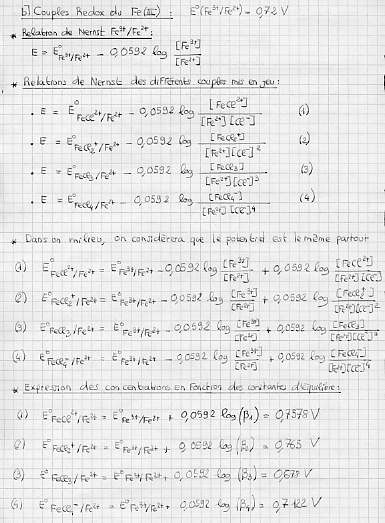 b) Couples Redox du Fe(III) : E°(Fe³⁺/Fe²⁺) = 0,72 V
* Relation de Nernst Fe³⁺/Fe²⁺ :
E = E°Fe³⁺/Fe²⁺ - 0,0592 log [Fe³⁺]/[Fe²⁺]
* Relations de Nernst des différents couples mis en jeu :
• E = E°FeCl²⁺/Fe²⁺ - 0,0592 log [FeCl²⁺]/[Fe²⁺][Cl⁻] (1)
• E = E°FeCl₂⁺/Fe²⁺ - 0,0592 log [FeCl₂⁺]/[Fe²⁺][Cl⁻]² (2)
• E = E°FeCl₃/Fe²⁺ - 0,0592 log [FeCl₃]/[Fe²⁺][Cl⁻]³ (3)
• E = E°FeCl₄⁻/Fe²⁺ - 0,0592 log [FeCl₄⁻]/[Fe²⁺][Cl⁻]⁴ (4)
* Dans un milieu, on considèrera que le potentiel est le même partout
(1) E°FeCl²⁺/Fe²⁺ = E°Fe³⁺/Fe²⁺ - 0,0592 log [Fe³⁺]/[Fe²⁺] + 0,0592 log [FeCl²⁺]/[Fe²⁺][Cl⁻]
(2) E°FeCl₂⁺/Fe²⁺ = E°Fe³⁺/Fe²⁺ - 0,0592 log [Fe³⁺]/[Fe²⁺] + 0,0592 log [FeCl₂⁺]/[Fe²⁺][Cl⁻]²
(3) E°FeCl₃/Fe²⁺ = E°Fe³⁺/Fe²⁺ - 0,0592 log [Fe³⁺]/[Fe²⁺] + 0,0592 log [FeCl₃]/[Fe²⁺][Cl⁻]³
(4) E°FeCl₄⁻/Fe²⁺ = E°Fe³⁺/Fe²⁺ - 0,0592 log [Fe³⁺]/[Fe²⁺] + 0,0592 log [FeCl₄⁻]/[Fe²⁺][Cl⁻]⁴
* Expression des concentrations en fonction des constantes d'équilibre :
(1) E°FeCl²⁺/Fe²⁺ = E°Fe³⁺/Fe²⁺ + 0,0592 log (β₁) = 0,7578 V
(2) E°FeCl₂⁺/Fe²⁺ = E°Fe³⁺/Fe²⁺ + 0,0592 log (β₂) = 0,765 V
(3) E°FeCl₃/Fe²⁺ = E°Fe³⁺/Fe²⁺ + 0,0592 log (β₃) = 0,679 V
E°FeCl₄⁻/Fe²⁺ = E°Fe³⁺/Fe²⁺ + 0,0592 log (β₄) = V